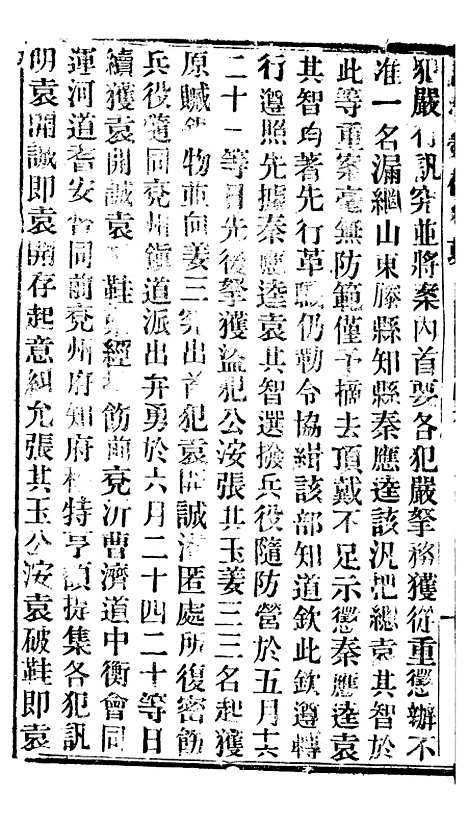 犯嚴行訊究並將案內首要各犯嚴拏務獲從重懲辦不
准一名漏網山東滕縣知縣秦應逵該汛把總袁其智於
此等重案毫無防範僅予摘去頂戴不足示懲秦應逵袁
其智均著先行革職仍勒令協緝該部知道欽此欽遵轉
行遵照先據秦應逵袁其智選撥兵役隨防營於五月十六
二十一等日先後拏獲盜犯公洝張其玉姜三三名起獲
原贓 物並向姜三究出首犯袁開誠潛匿處所復密飭
兵役隨同兗州鎮道派出弁勇於六月二十四二十等日
續獲袁開誠袁 鞋 經 飭前兗沂曹濟道中衡會同
運河道耆安 同前兗州府知府 特亨額提集各犯訊
明袁開誠即袁開存起意糾允張其玉公洝袁破鞋即袁